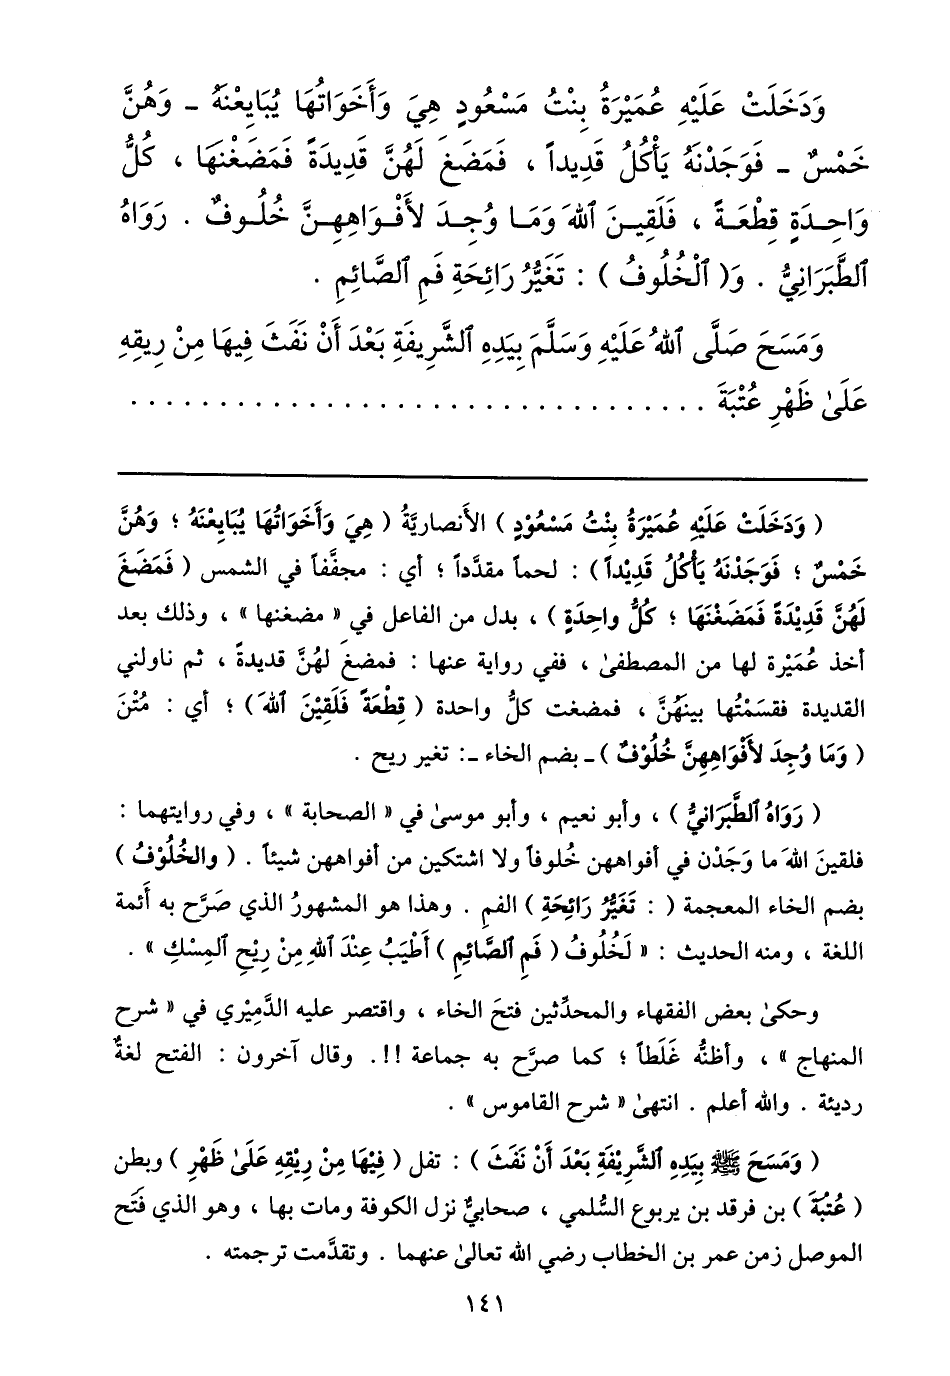 وَدَخَلَتْ عَلَيْهِ عُمَيْرَةُ بِنْتُ مَسْعُودٍ هِيَ وَأَخَوَاتُهَا يُبَايِعْنَهُ - وَهُنَّ
خَمْسٌ - فَوَجَدْنَهُ يَأْكُلُ قَدِيداً ، فَمَضَغَ لَهُنَّ قَدِيدَةً فَمَضَغْنَهَا ، كُلُّ
وَاحِدَةٍ قِطْعَةً ، فَلَقِينَ ٱللهَ وَمَا وُجِدَ لأَفْوَاهِهِنَّ خُلُوفٌ . رَوَاهُ
ٱلطَّبَرَانِيُّ . وَ( ٱلْخُلُوفُ ) : تَغَيُّرُ رَائِحَةِ فَمِ ٱلصَّائِمِ .
وَمَسَحَ صَلَّى ٱللهُ عَلَيْهِ وَسَلَّمَ بِيَدِهِ ٱلشَّرِيفَةِ بَعْدَ أَنْ نَفَثَ فِيهَا مِنْ رِيقِهِ
عَلَىٰ ظَهْرِ عُتْبَةَ . . . . . . . . . . . . . . . . . . . . . . . . . . . . . . . .
( وَدَخَلَتْ عَلَيْهِ عُمَيْرَةُ بِنْتُ مَسْعُوْدٍ ) الأَنصاريَّةُ ( هِيَ وَأَخَوَاتُهَا يُبَايِعْنَهُ ؛ وَهُنَّ
خَمْسٌ ؛ فَوَجَدْنَهُ يَأْكُلُ قَدِيْداً ) : لحماً مقدَّداً ؛ أي : مجفَّفاً في الشمس ( فَمَضَغَ
لَهُنَّ قَدِيْدَةً فَمَضَغْنَهَا ؛ كُلُّ واحِدَةٍ ) ، بدل من الفاعل في « مضغنها » ، وذلك بعد
أخذ عُمَيْرة لها من المصطفىٰ ، ففي رواية عنها : فمضغَ لهُنَّ قديدةً ، ثم ناولني
القديدة فقسَمْتُها بينهُنَّ ، فمضغت كلُّ واحدة ( قِطْعَةً فَلَقِيْنَ ٱللهَ ) ؛ أي : مُتْنَ
( وَمَا وُجِدَ لأَفْوَاهِهِنَّ خُلُوْفٌ ) ـ بضم الخاء ـ: تغير ريح .
( رَوَاهُ ٱلطَّبَرَانيُّ ) ، وأبو نعيم ، وأبو موسىٰ في « الصحابة » ، وفي روايتهما :
فلقينَ اللهَ ما وَجَدْن في أفواههن خُلوفاً ولا اشتكين من أفواههن شيئاً . ( والخُلُوْفُ )
بضم الخاء المعجمة ( : تَغَيُّرُ رَائِحَةِ ) الفم . وهذا هو المشهورُ الذي صَرَّح به أَئمة
اللغة ، ومنه الحديث : « لَخُلُوفُ ( فَمِ ٱلصَّائِمِ ) أَطْيَبُ عِنْدَ ٱللهِ مِنْ رِيْحِ ٱلمِسْكِ » .
وحكىٰ بعض الفقهاء والمحدِّثين فتحَ الخاء ، واقتصر عليه الدَّمِيْري في « شرح
المنهاج » ، وأظنُّه غَلَطاً ؛ كما صرَّح به جماعة !!. وقال آخرون : الفتح لغةٌ
رديئة . والله أعلم . انتهىٰ « شرح القاموس » .
( وَمَسَحَ ﷺ بِيَدِهِ ٱلشَّرِيْفَةِ بَعْدَ أَنْ نَفَثَ ) : تفل ( فِيْهَا مِنْ رِيْقِهِ عَلَىٰ ظَهْرِ ) وبطن
( عُتْبَةَ ) بن فرقد بن يربوع السُّلمي ، صحابيٌّ نزل الكوفة ومات بها ، وهو الذي فَتَح
الموصل زمن عمر بن الخطاب رضي الله تعالىٰ عنهما . وتقدَّمت ترجمته .
١٤١